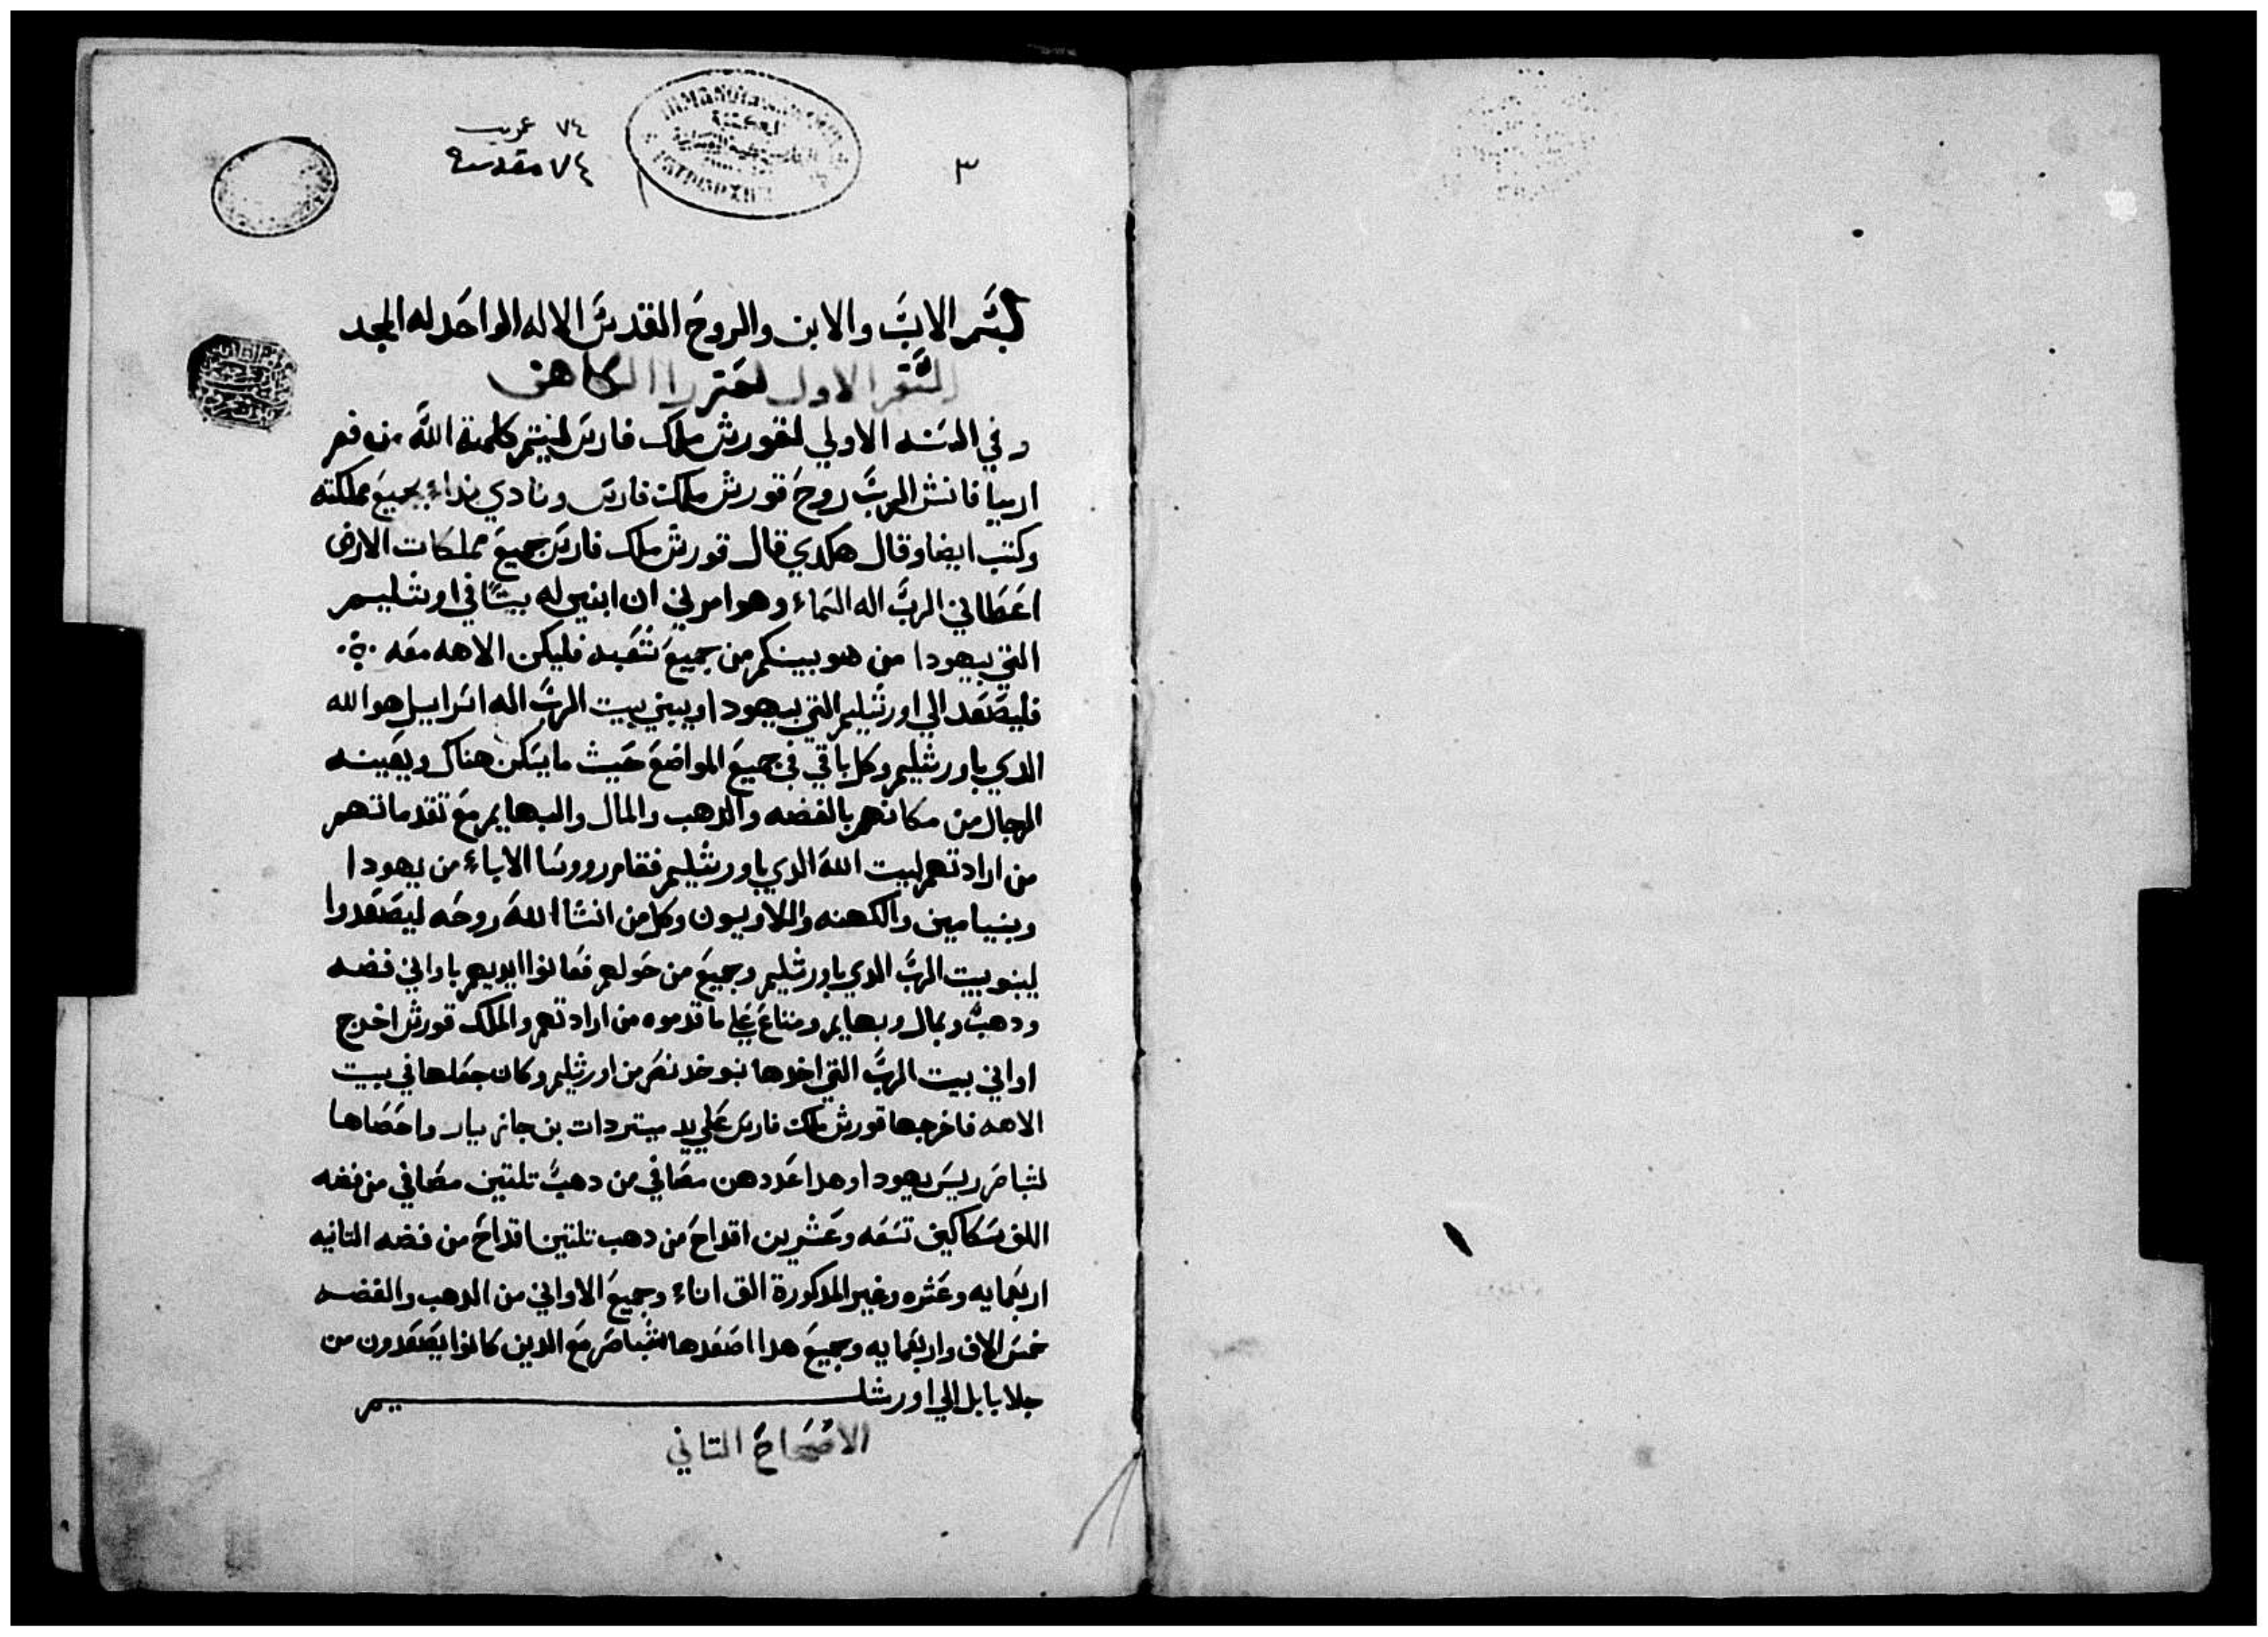 ٣
٧٤ عربي
٧٤ مقدسة
بسم الاب والابن والروح القدس الاله الواحد له المجد
السفر الاول لعزرا الكاهن
وفي السنه الاولي لقورش ملك فارس ليتم كلمة الله من فم
ارميا فانشا الرب روح قورش ملك فارس ونادي نداء بجميع مملكته
وكتب ايضا وقال هكدي قال قورش ملك فارس جميع مملكات الارض
اعطاني الرب اله السماء وهو امرني ان ابني له بيتا في اورشليم
التي بيهودا من هو بينكم من جميع شعبه فليكن الاهه معه
فليصعد الي اورشليم التي بيهودا ويبني بيت الرب اله اسراييل هو الله
الدي باورشليم وكل باقي في جميع المواضع حيث ما يسكن هناك ويعينه
الرجال من مكانهم بالفضه والدهب والمال والبهايم مع تقدماتهم
من ارادتهم لبيت الله الدي باورشليم فقام رووسا الاباء من يهودا
وبنيامين والكهنه واللاويون وكل من انشا الله روحه ليصعدوا
ليبنو بيت الرب الدي باورشليم وجميع من حولهم فعانوا ايديهم باواني فضه
ودهب وبمال وبهايم ومتاع علي ما قدموه من ارادتهم والملك قورش اخرج
اواني بيت الرب التي اخدها نبوخد نصر من اورشليم وكان جعلها في بيت
الاهه فاخرجها قورش ملك فارس علي يد ميتردات بن جازبيار واحصاها
لشباصر ريس يهودا وهدا عددهن مصافي من دهب تلتين مصافي من فضه
الف سكاكين تسعه وعشرين اقداح من دهب تلتين اقداح من فضه التانيه
اربعمايه وعشره وغير المدكورة الف اناء وجميع الاواني من الدهب والفضه
خمس الاف واربعمايه وجميع هدا اصعدها شباصر مع الدين كانوا يصعدون من
جلا بابل الي اورشليم
الاصحاح التاني